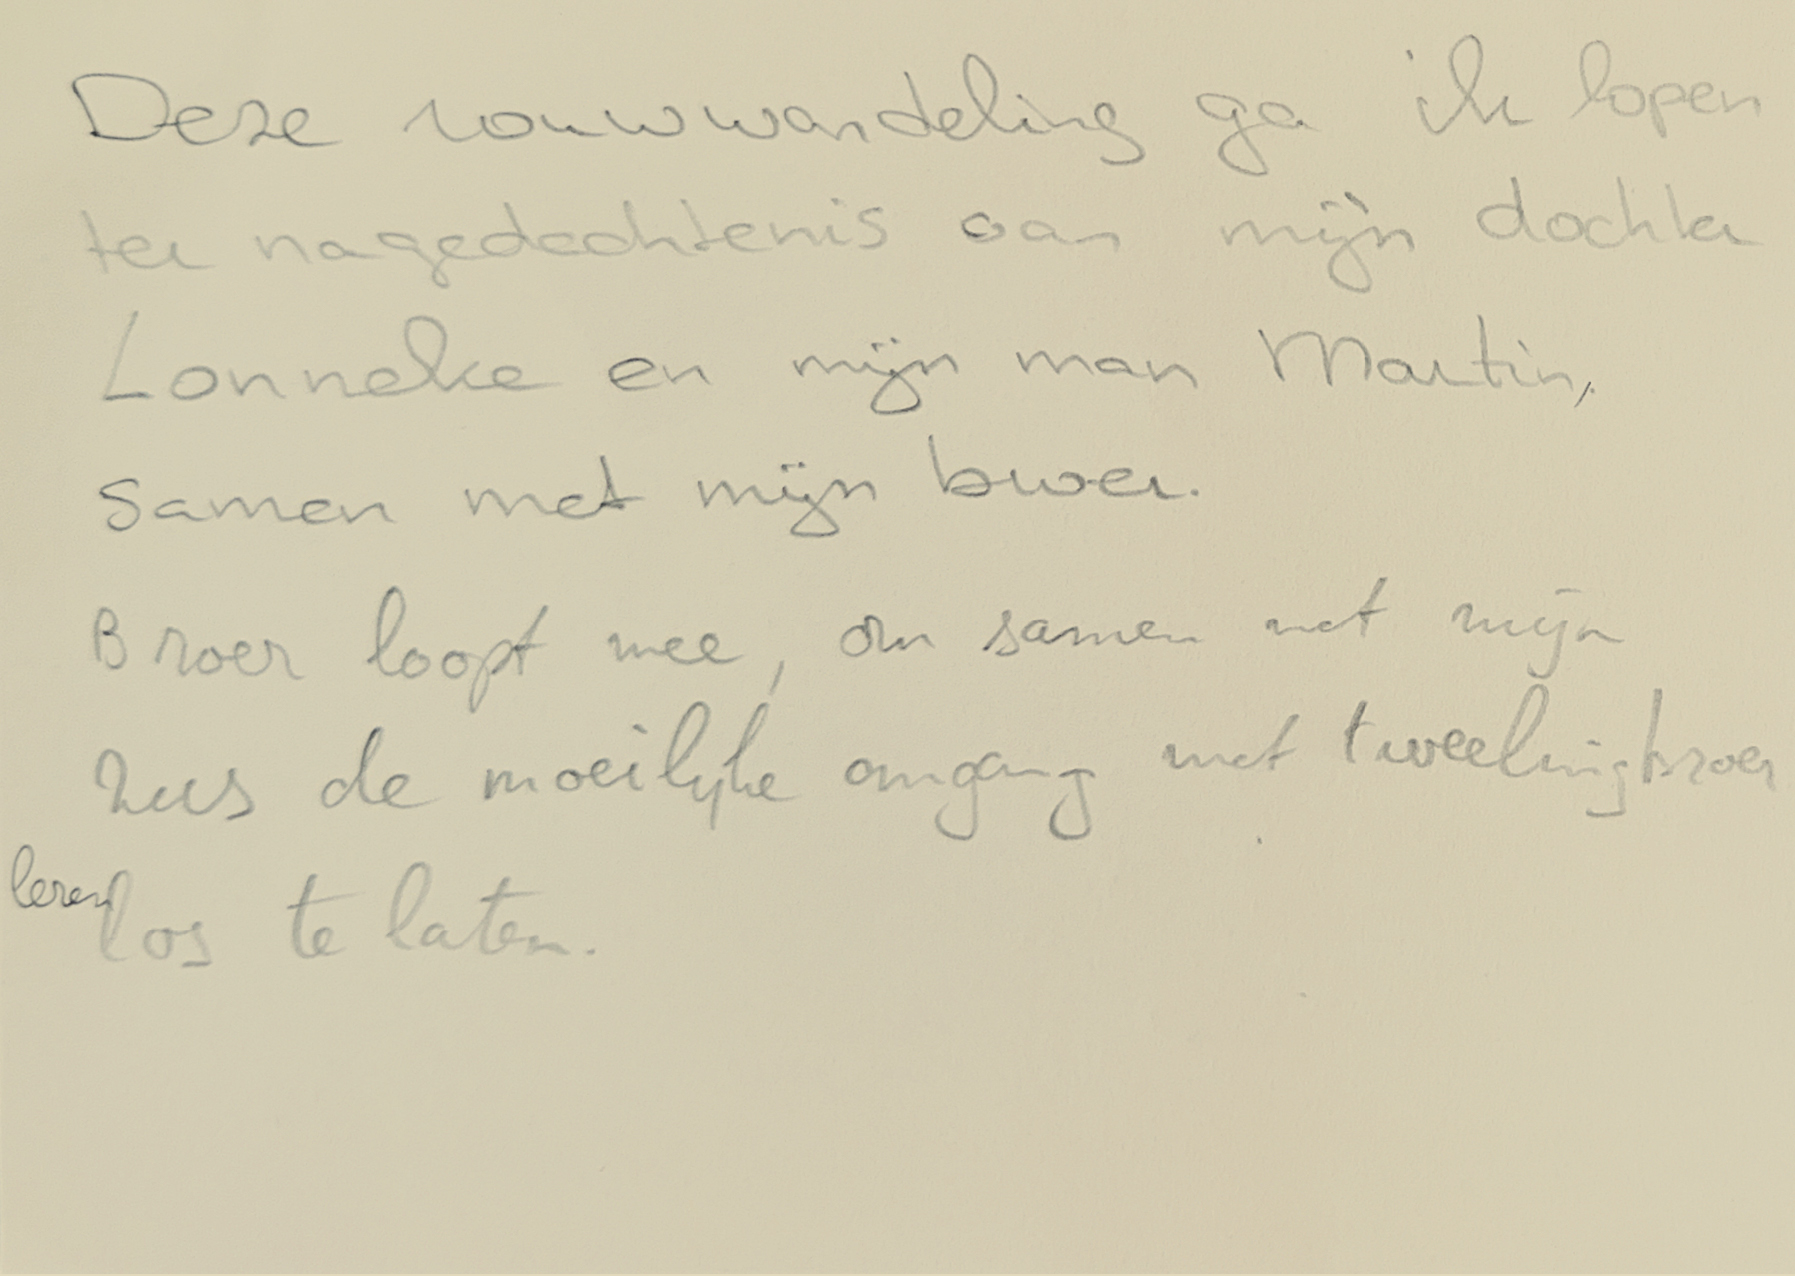 Deze rouwwandeling ga ik lopen
ter nagedachtenis aan mijn dochter
Lonneke en mijn man Martin,
samen met mijn broer.
Broer loopt mee, om samen met mijn
zus de moeilijke omgang met tweelingbroer
leren los te laten.